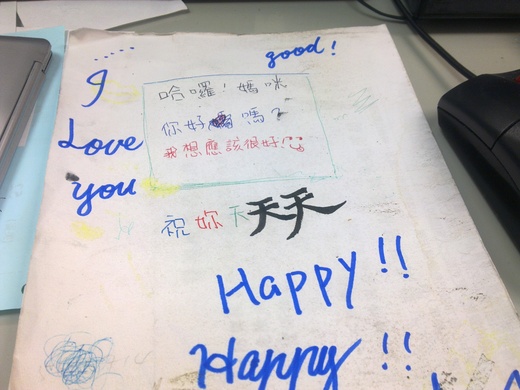 good!
I
Love
you
哈囉！媽咪
你好嗎？
我想應該很好！
祝妳天天天
Happy!!
Happy!!